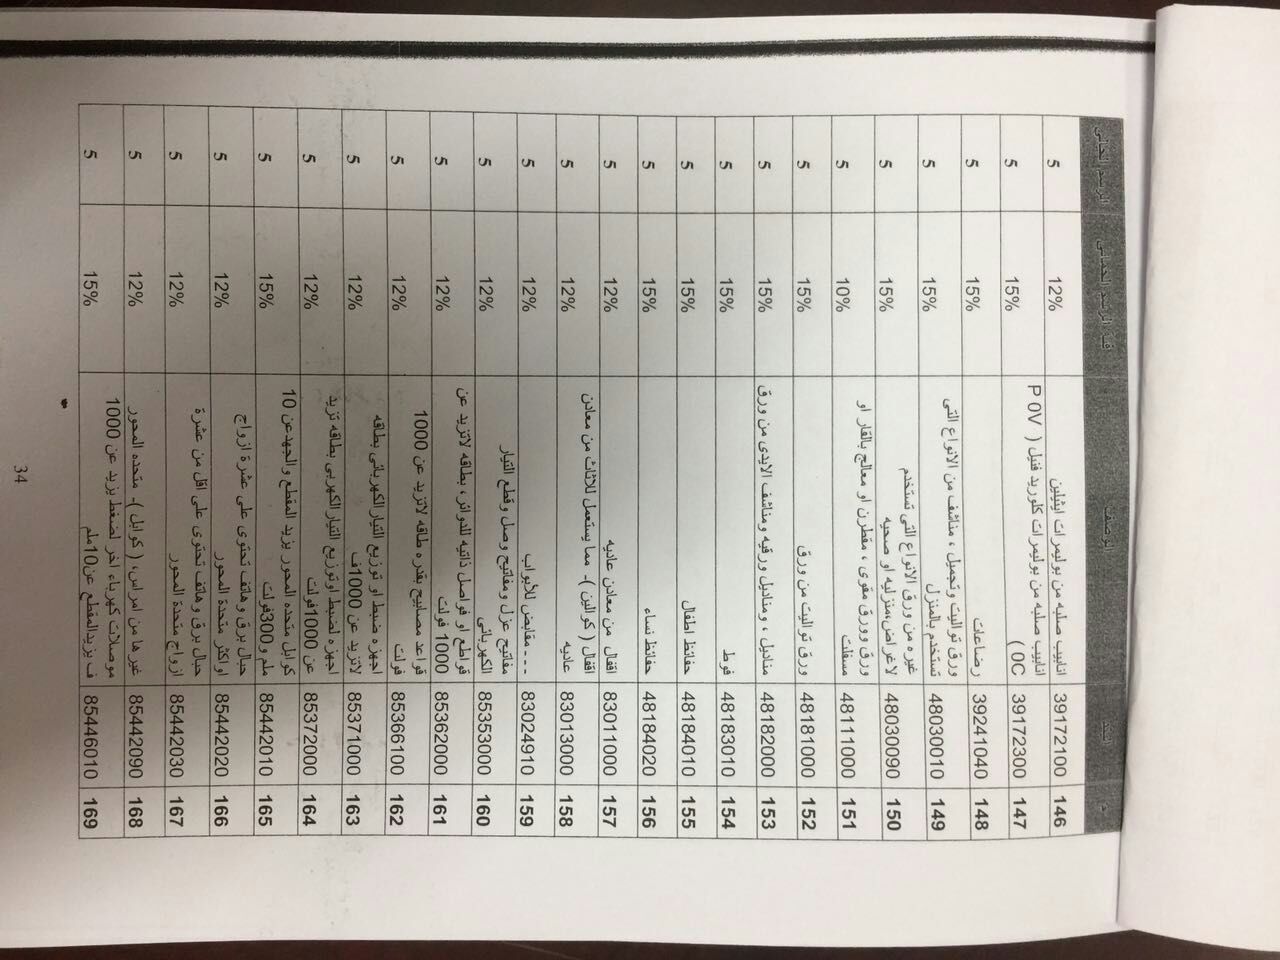 م البند الوصف فئة الرسم الحمائى الرسم الحالى
146 39172100 انابيب صلبه من بوليمرات ايثيلين 12% 5
147 39172300 انابيب صلبه من بوليمرات كلوريد فنيل ( P 0V
0C ) 15% 5
148 39241040 رضاعات 15% 5
149 48030010 ورق تواليت وتجميل ، مناشف من الانواع التى
تستخدم بالمنزل 15% 5
150 48030090 غيره من ورق الانواع التى تستخدم
لاغراض،منزليه او صحيه 15% 5
151 48111000 ورق وورق مقوى ، مقطرن او معالج بالقار او
مسفلت 10% 5
152 48181000 ورق تواليت من ورق 15% 5
153 48182000 مناديل ، ومناديل ورقيه ومناشف الايدى من ورق 15% 5
154 48183010 فوط 15% 5
155 48184010 حفائظ اطفال 15% 5
156 48184020 حفائظ نساء 15% 5
157 83011000 اقفال من معادن عاديه 12% 5
158 83013000 اقفال ( كوالين )- مما يستعمل للاثاث من معادن
عاديه 12% 5
159 83024910 - - - مقابض للأبواب 12% 5
160 85353000 مفاتيح عزل ومفاتيح وصل وقطع التيار
الكهربائى 12% 5
161 85362000 قواطع او فواصل ذاتيه للدوائر، بطاقه لاتزيد عن
1000 فولت 12% 5
162 85366100 قواعد مصابيح بقدره طاقه لاتزيد عن 1000
فولت 12% 5
163 85371000 اجهزه ضبط او توزيع التيار الكهربائى بطاقه
لاتزيد عن 1000ف 12% 5
164 85372000 اجهزه لضبط اوتوزيع التيار الكهربى بطاقه تزيد
عن 1000فولت 12% 5
165 85442010 كوابل متحده المحور يزيد المقطع والجهدعن 10
ملم و300فولت 15% 5
166 85442020 حبال برق وهاتف تحتوى على عشرة ازواج
او اكثر متحدة المحور 12% 5
167 85442030 حبال برق وهاتف تحتوى على اقل من عشرة
ازواج متحدة المحور 12% 5
168 85442090 غيرها من امراس، ( كوابل )- متحده المحور 12% 5
169 85446010 موصلات كهرباء اخر لضغط يزيد عن 1000
ف يزيدالمقطع عن10ملم 15% 5
34